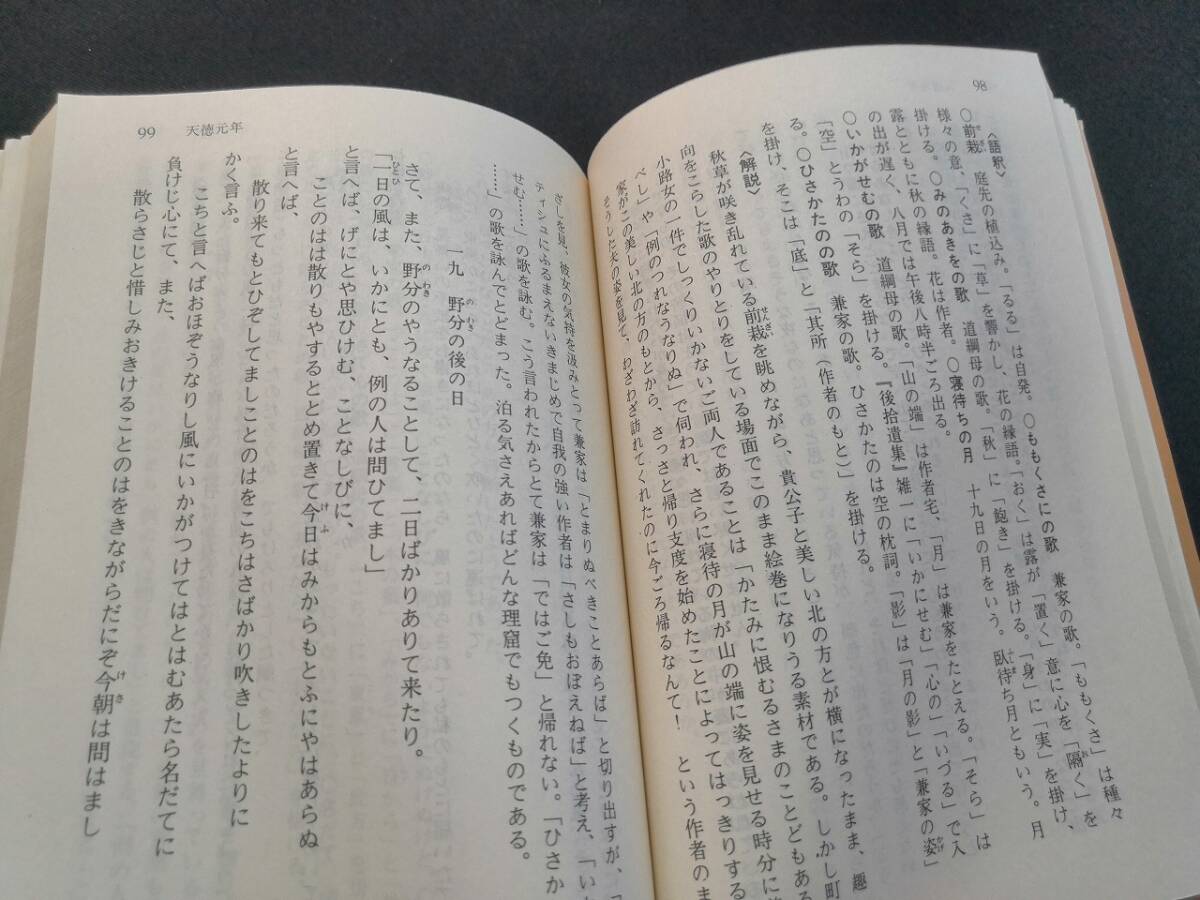 98
〈語釈〉
○前栽　庭先の植込み。「るる」は自発。○ももくさにの歌　兼家の歌。「ももくさ」は種々
様々の意、「くさ」に「草」を響かし、花の縁語。「おく」は露が「置く」意に心を「隔く」を
掛ける。○みのあきをの歌　道綱母の歌。「秋」に「飽き」を掛ける。「身」に「実」を掛け、
露とともに秋の縁語。花は作者。○寝待ちの月　十九日の月をいう。臥待ち月ともいう。月
の出が遅く、八月では午後八時半ごろ出る。
○いかがせむの歌　道綱母の歌。「山の端」は作者宅、「月」は兼家をたとえる。「そら」は
「空」とうわの「そら」を掛ける。『後拾遺集』雑一に「いかにせむ」「心の」「いづる」で入
る。○ひさかたのの歌　兼家の歌。ひさかたのは空の枕詞。「影」は「月の影」と「兼家の姿」
を掛け、そこは「底」と「其所（作者のもと）」を掛ける。
〈解説〉
秋草が咲き乱れている前栽を眺めながら、貴公子と美しい北の方とが横になったまま、趣
向をこらした歌のやりとりをしている場面でこのまま絵巻になりうる素材である。しかし町
小路女の一件でしっくりいかないご両人であることは「かたみに恨むるさまのことどもある
べし」や「例のつれなうなりぬ」で伺われ、さらに寝待の月が山の端に姿を見せる時分に
家がこの美しい北の方のもとから、さっさと帰り支度を始めたことによってはっきりする
そうした夫の姿を見て、わざわざ訪れてくれたのに今ごろ帰るなんて！　という作者のま
99　天徳元年
ざしを見、彼女の気持を汲みとって兼家は「とまりぬべきことあらば」と切り出すが、「
ティシュにふるまえないきまじめで自我の強い作者は「さしもおぼえねば」と考え、「い
せむ……」の歌を詠む。こう言われたからとて兼家は「ではご免」と帰れない。「ひさか
……」の歌を詠んでとどまった。泊る気さえあればどんな理窟でもつくものである。
一九　野分の後の日
さて、また、野分のやうなることして、二日ばかりありて来たり。
「一日の風は、いかにとも、例の人は問ひてまし」
と言へば、げにとや思ひけむ、ことなしびに、
ことのはは散りもやするととめ置きて今日はみからもとふにやはあらぬ
と言へば、
散り来てもとひぞしてましことのはをこちはさばかり吹きしたよりに
かく言ふ。
こちと言へばおほぞうなりし風にいかがつけてはとはむあたら名だてに
負けじ心にて、また、
散らさじと惜しみおきけることのはをきながらだにぞ今朝は問はまし